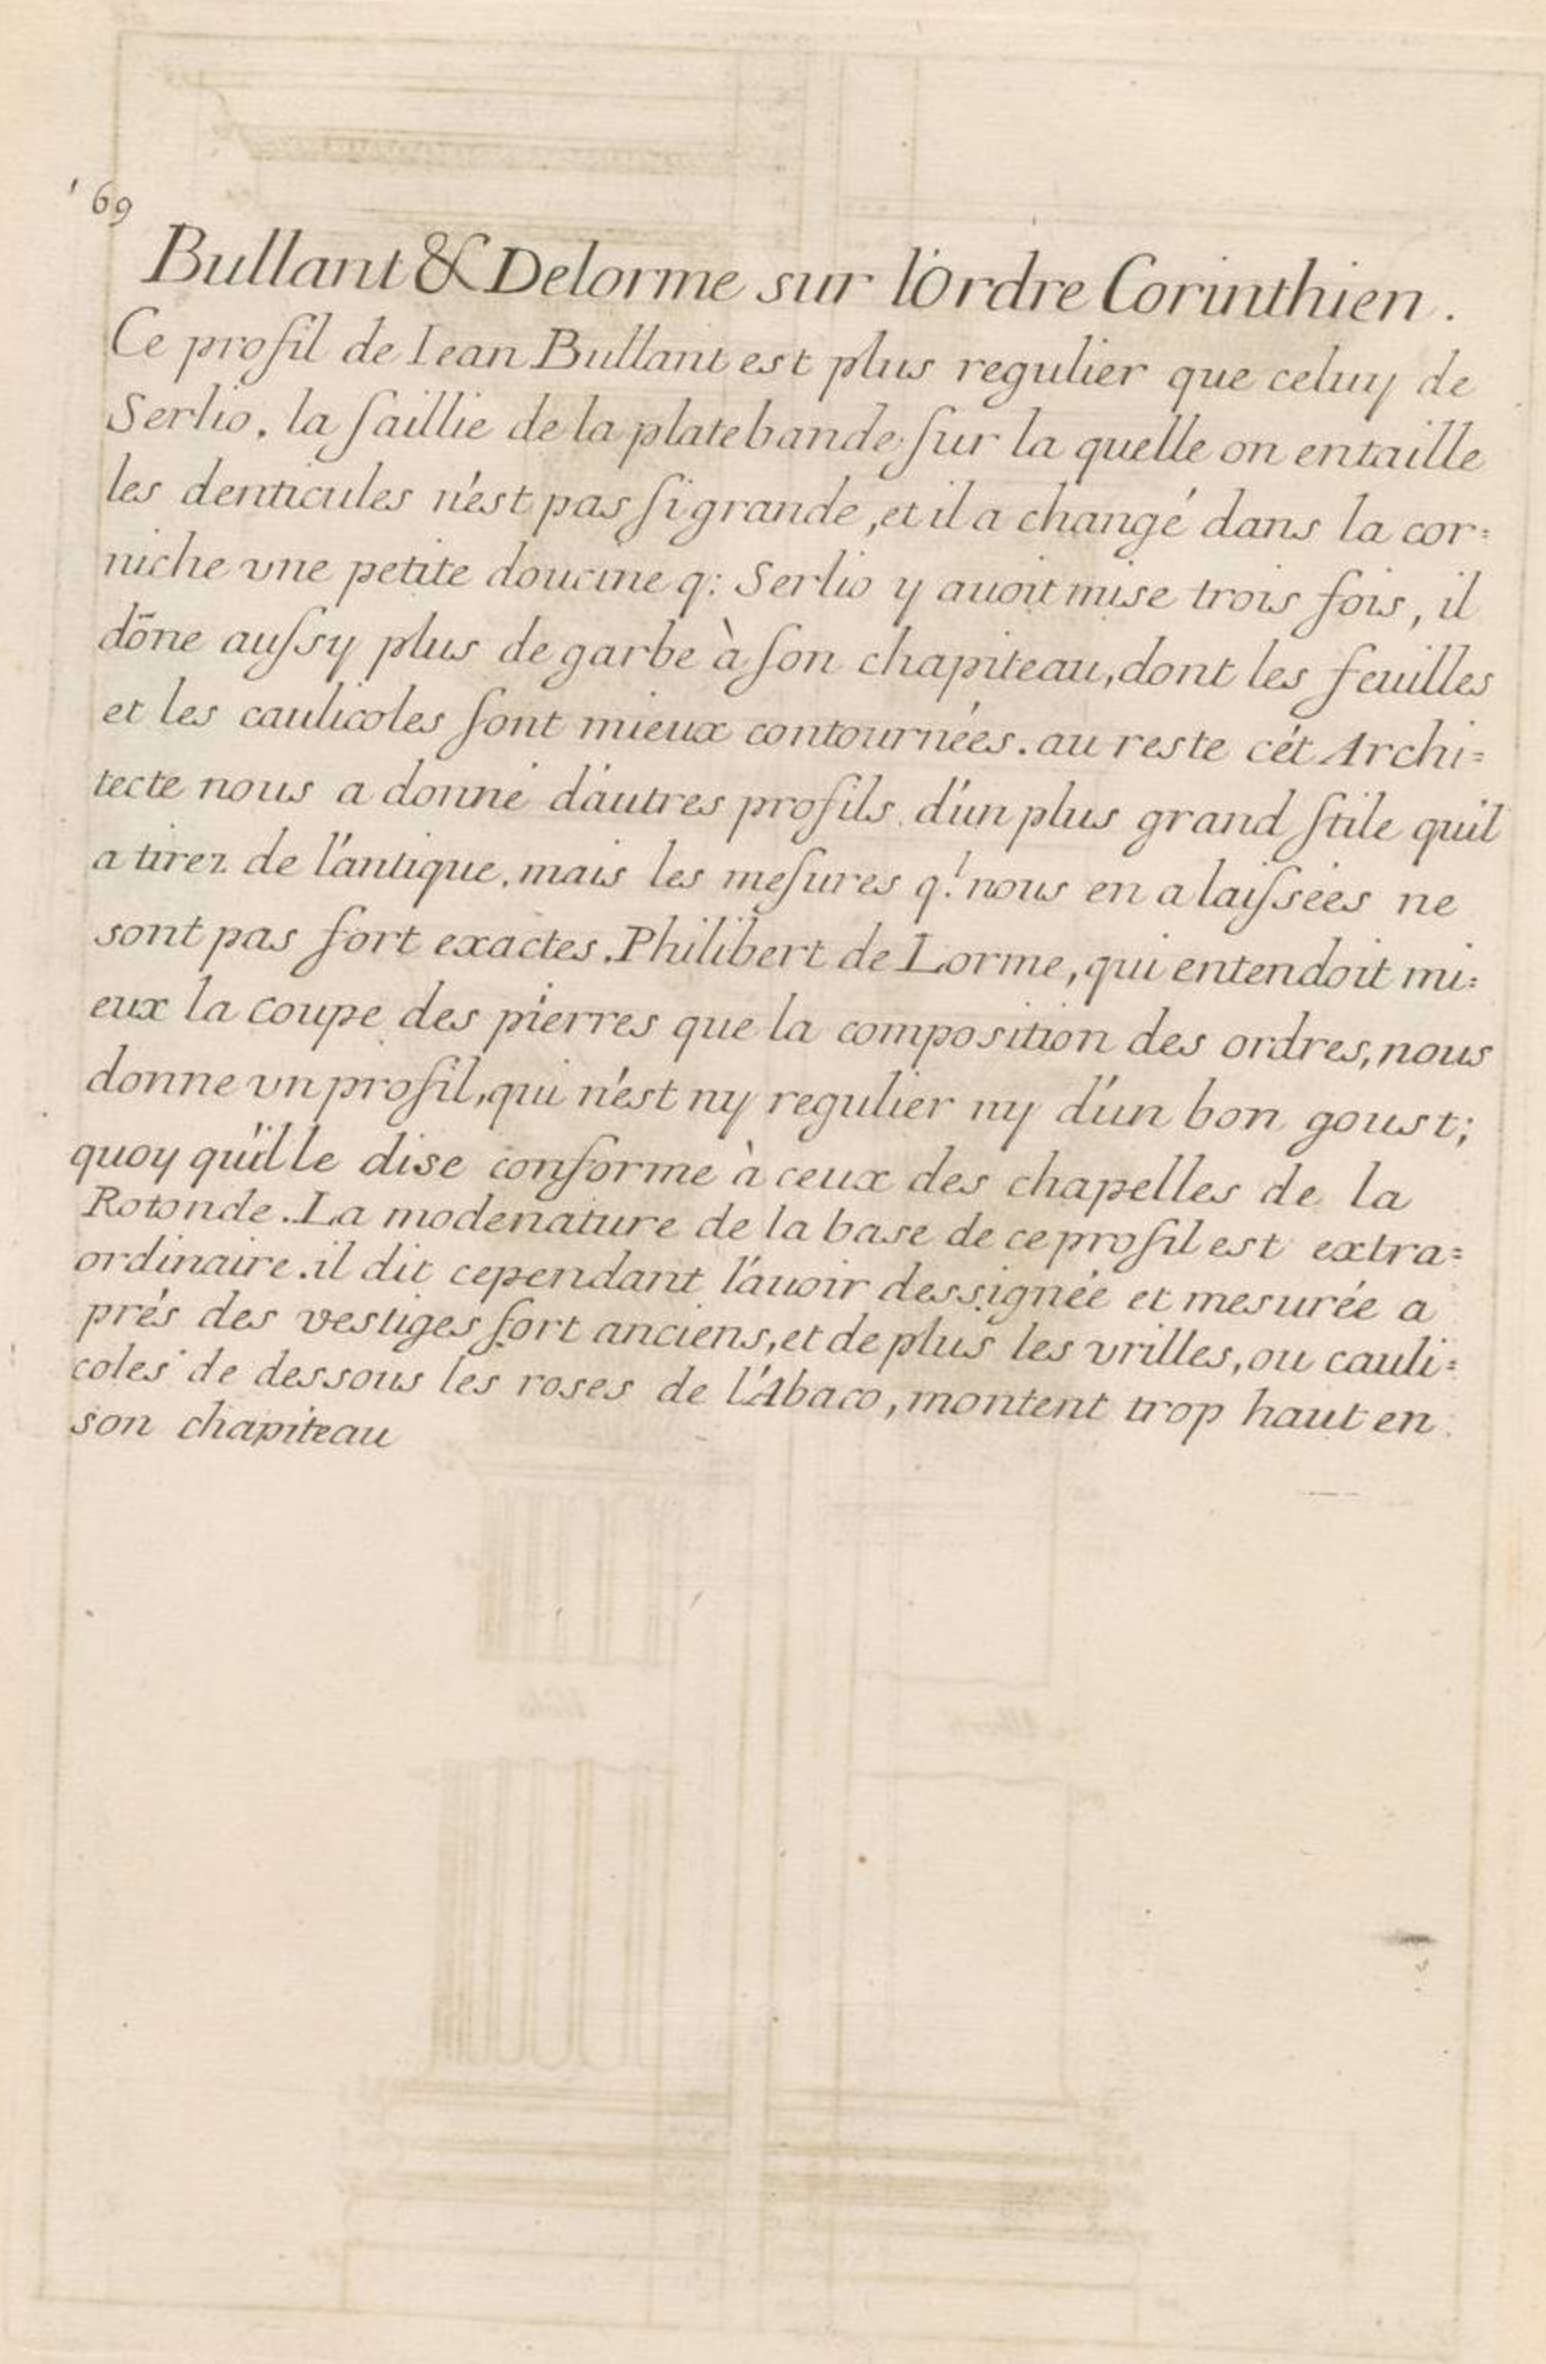 69
Bullant & Delorme sur l'Ordre Corinthien.
Ce profil de Iean Bullant est plus regulier que celuy de
Serlio. la ſaillie de la platebande ſur la quelle on entaille
les denticules n'est pas ſi grande, et il a changé dans la cor=
niche vne petite doucine q: Serlio y auoit mise trois fois, il
dõne auſsy plus de garbe à ſon chapiteau, dont les feuilles
et les caulicoles ſont mieux contournées. au reste cét Archi=
tecte nous a donné d'autres profils d'un plus grand ſtile quil
a tirez de l'antique. mais les meſures q.l nous en a laiſsées ne
sont pas fort exactes. Philibert de Lorme, qui entendoit mi=
eux la coupe des pierres que la composition des ordres, nous
donne vn profil, qui n'est ny regulier ny d'un bon goust;
quoy qu'il le dise conforme à ceux des chapelles de la
Rotonde. La modenature de la base de ce profil est extra=
ordinaire. il dit cependant l'auoir dessignée et mesurée a
prés des vestiges fort anciens, et de plus les vrilles, ou cauli=
coles de dessous les roses de l'Abaco, montent trop haut en
son chapiteau